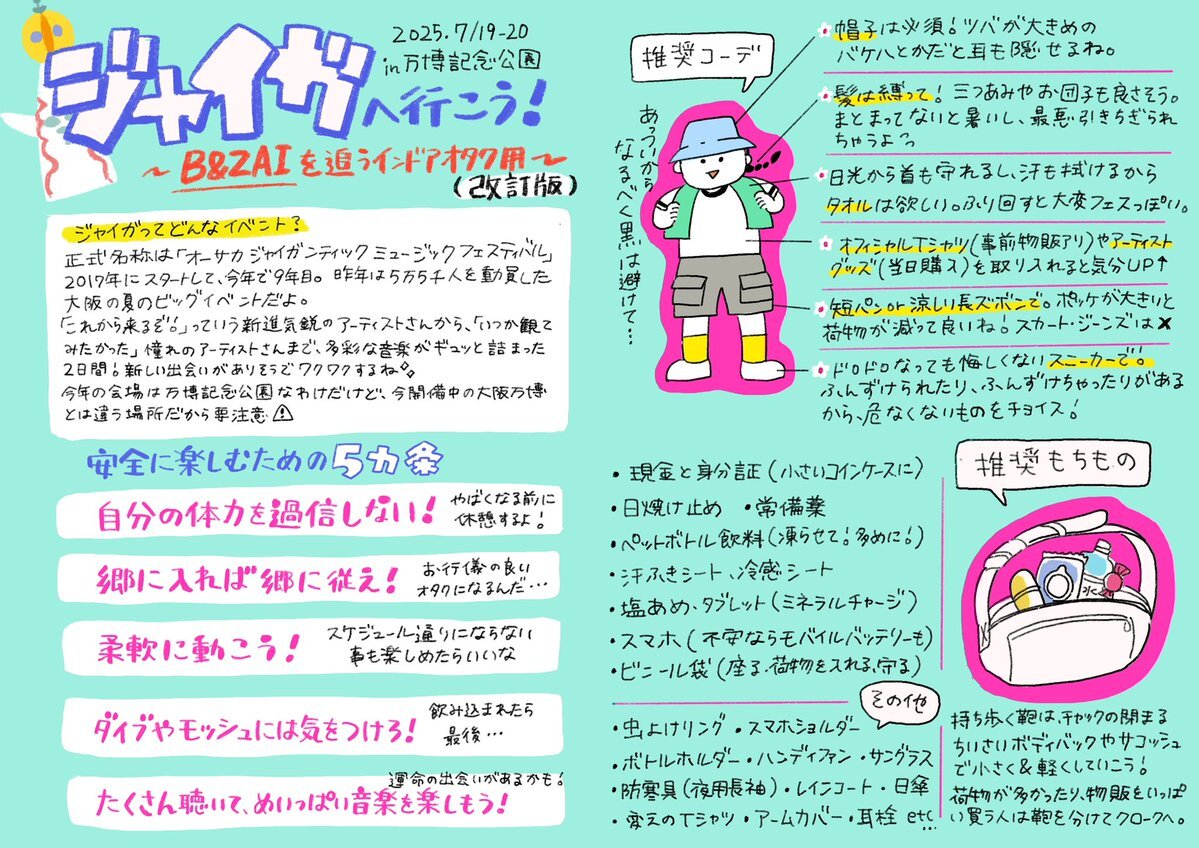 2025.7/19-20
in万博記念公園
ジャイガへ行こう!
~B&ZAIを追うインドアオタク用~
(改訂版)
ジャイガってどんなイベント?
正式名称は「オーサカ ジャイガンティック ミュージック フェスティバル」
2017年にスタートして、今年で9年目。昨年は5万5千人を動員した
大阪の夏のビッグイベントだよ。
「これから来るぞ!」っていう新進気鋭のアーティストさんから、「いつか観て
みたかった」憧れのアーティストさんまで、多彩な音楽がギュッと詰まった
2日間!新しい出会いがありそうでワクワクするね。
今年の会場は万博記念公園なわけだけど、今開備中の大阪万博
とは違う場所だから要注意⚠
安全に楽しむための5カ条
自分の体力を過信しない!
やばくなる前に
休憩するよ!
郷に入れば郷に従え!
お行儀の良い
オタクになるんだ…
柔軟に動こう!
スケジュール通りにならない
事も楽しめたらいいな
ダイブやモッシュには気をつけろ!
飲み込まれたら
最後…
運命の出会いがあるかも!
たくさん聴いて、めいっぱい音楽を楽しもう!
推奨コーデ
あっついから
なるべく黒は避けて…
帽子は必須!ツバが大きめの
バケハとかだと耳も隠せるね。
髪は縛って!三つあみやお団子も良さそう。
まとまってないと暑いし、最悪引きちぎられ
ちゃうよっ
日光から首も守れるし、汗も拭けるから
タオルは欲しい。ふり回すと大変フェスっぽい。
オフィシャルTシャツ(事前物販アリ)やアーティスト
グッズ(当日購入)を取り入れると気分UP↑
短パンor涼しい長ズボンで。ポッケが大きいと
荷物が減って良いね!スカート・ジーンズは✖
ドロドロなっても悔しくないスニーカーで!
ふんずけられたり、ふんずけちゃったりがある
から、危なくないものをチョイス!
推奨もちもの
・現金と身分証(小さいコインケースに)
・日焼け止め ・常備薬
・ペットボトル飲料(凍らせて!多めに!)
・汗ふきシート、冷感シート
・塩あめ、タブレット(ミネラルチャージ)
・スマホ(不安ならモバイルバッテリーも)
・ビニール袋(座る・荷物を入れる、守る)
その他
・虫よけリング ・スマホショルダー
・ボトルホルダー ・ハンディファン ・サングラス
・防寒具(夜用長袖) ・レインコート ・日傘
・変えのTシャツ ・アームカバー ・耳栓 etc…
持ち歩く鞄は、チャックの閉まる
ちいさいボディバックやサコッシュ
で小さく&軽くしていこう!
荷物が多かったり、物販をいっぱ
い買う人は鞄を分けてクロークへ。